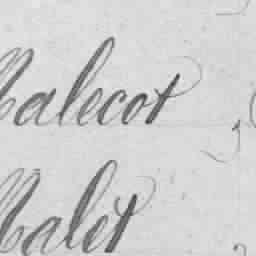 Malecot
Malet